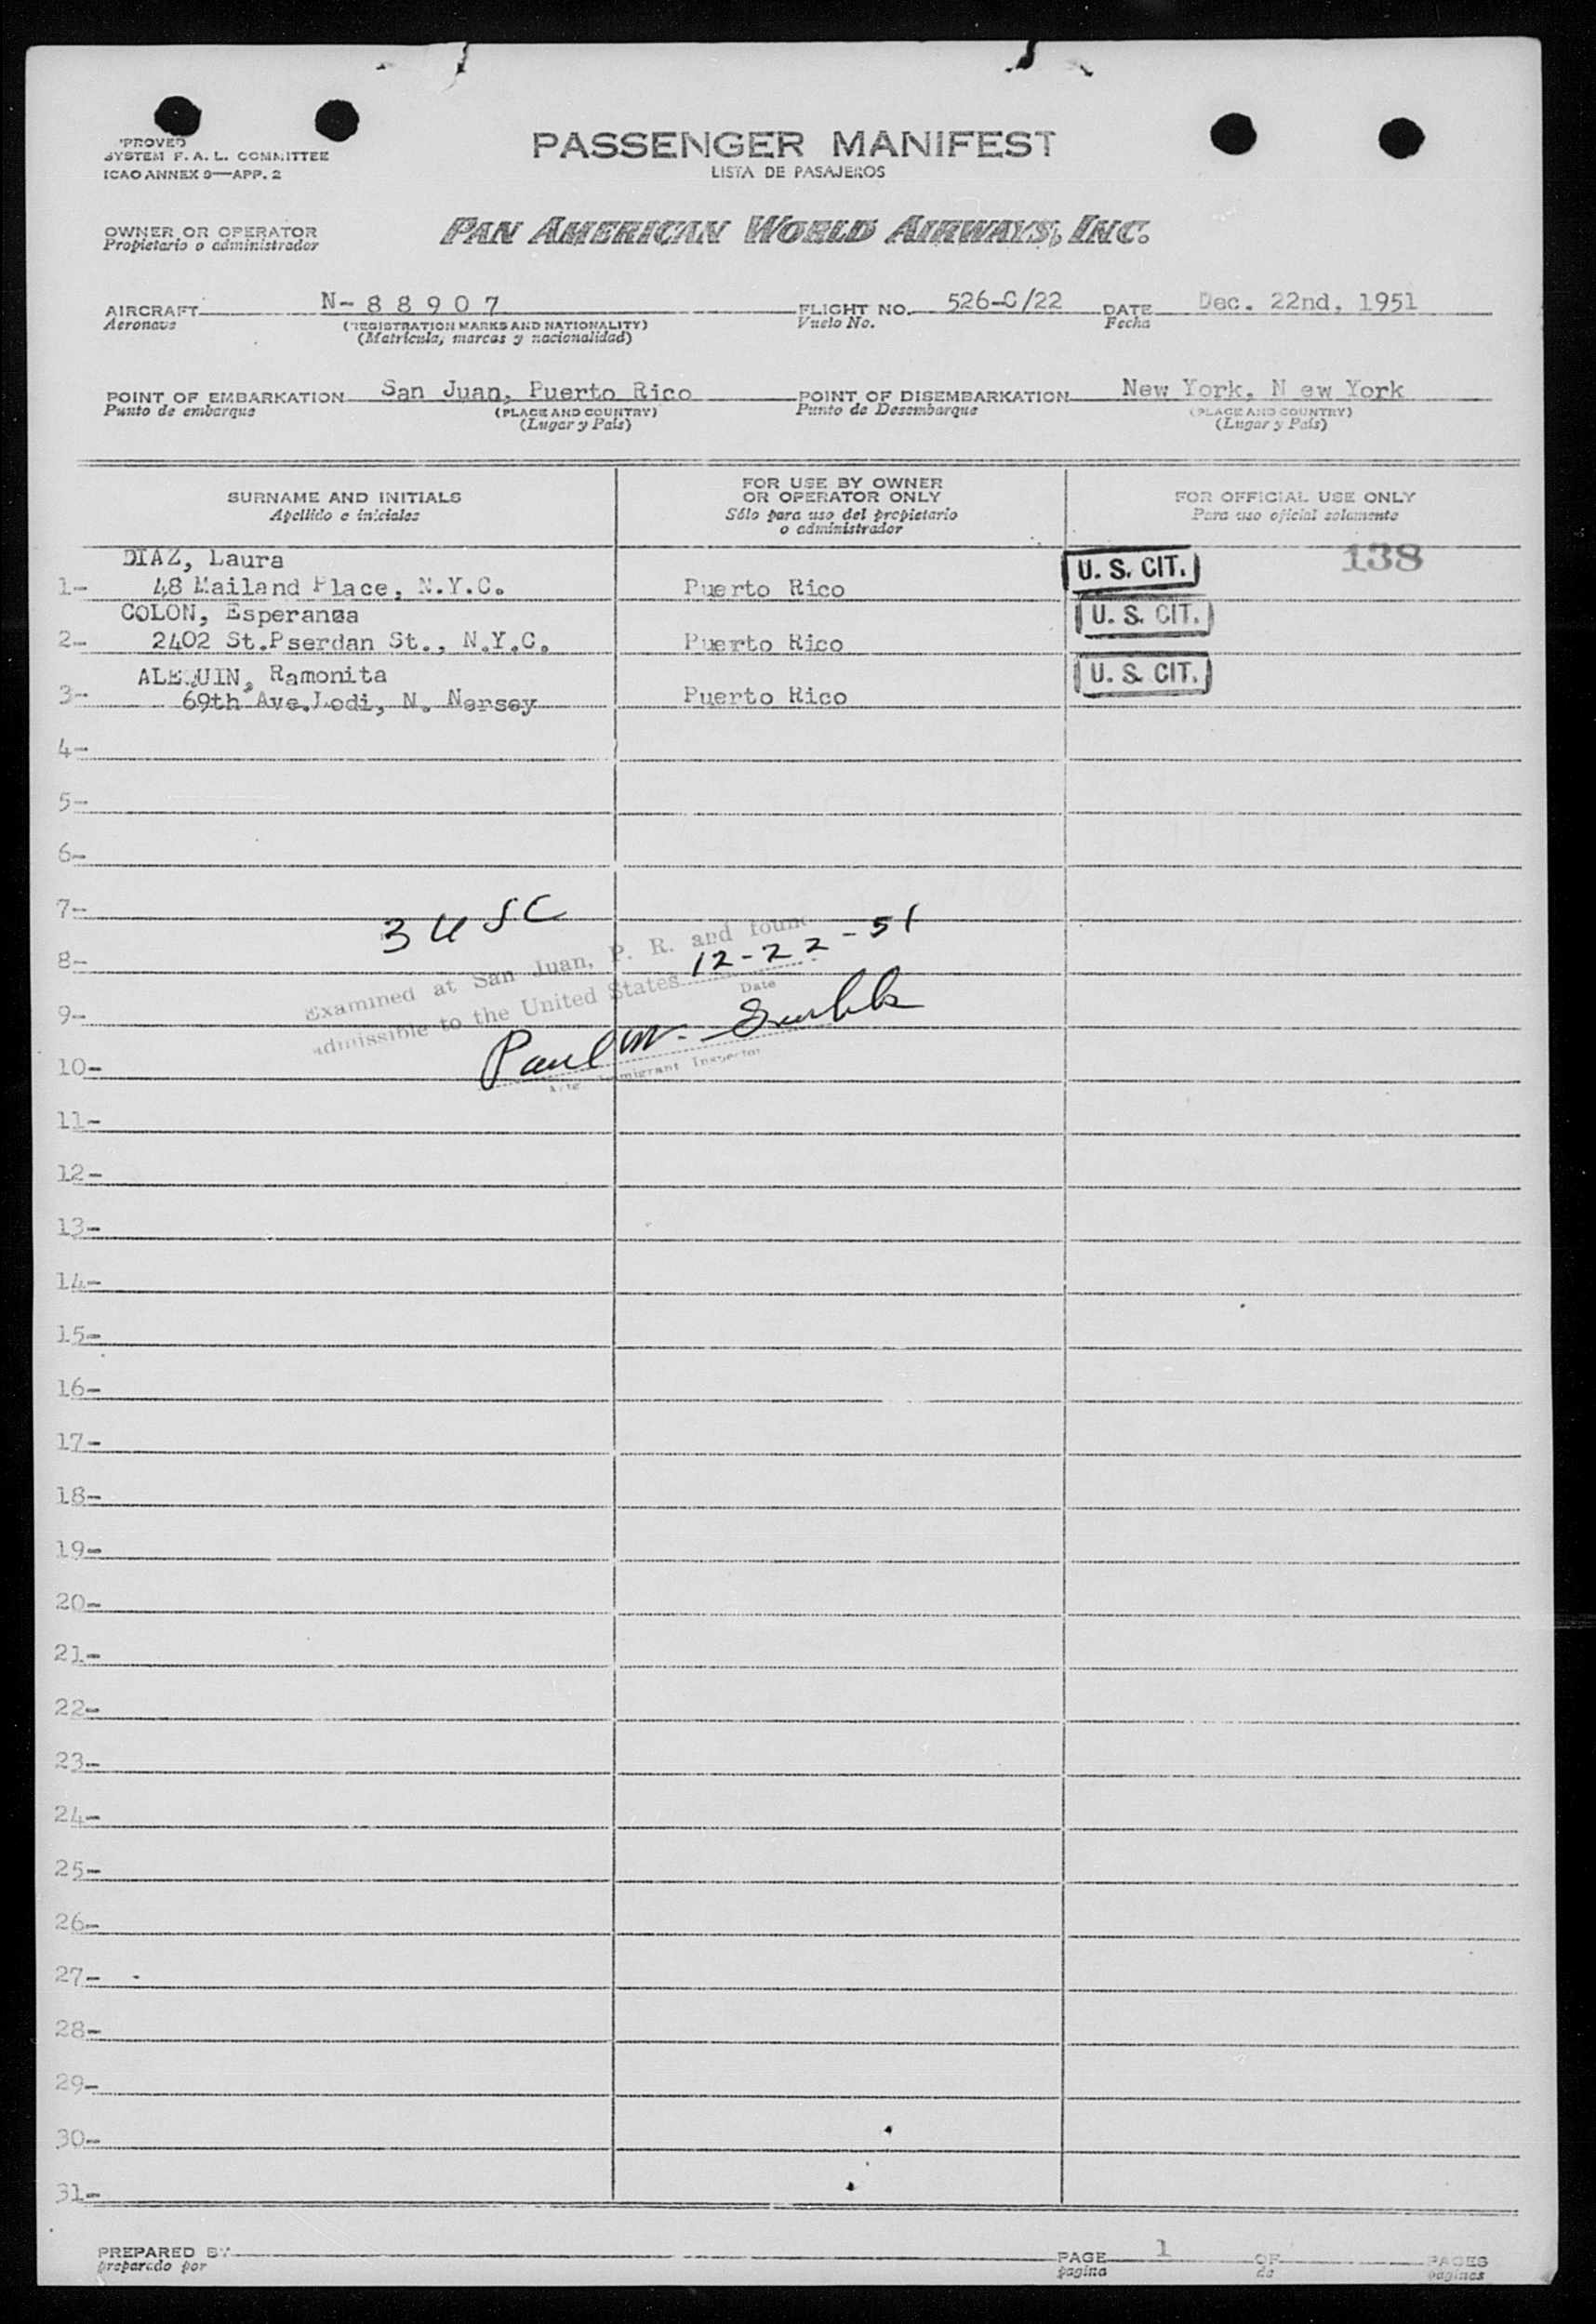 PROVED
SYSTEM F. A. L. COMMITTEE
ICAO ANNEX 9—APP. 2
PASSENGER MANIFEST
LISTA DE PASAJEROS
OWNER OR OPERATOR
Propietario o administrador
PAN AMERICAN WORLD AIRWAYS, INC.
AIRCRAFT N-88907 FLIGHT NO. 526-C/22 DATE Dec. 22nd, 1951
Aeronave (REGISTRATION MARKS AND NATIONALITY) Vuelo No. Fecha
(Matricula, marcas y nacionalidad)
POINT OF EMBARKATION San Juan, Puerto Rico POINT OF DISEMBARKATION New York, N ew York
Punto de embarque (PLACE AND COUNTRY) Punto de Desembarque (PLACE AND COUNTRY)
(Lugar y País) (Lugar y País)
SURNAME AND INITIALS
Apellido e iniciales
FOR USE BY OWNER
OR OPERATOR ONLY
Sólo para uso del propietario
o administrador
FOR OFFICIAL USE ONLY
Para uso oficial solamente
138
DIAZ, Laura
1- 48 Mailand Place, N.Y.C. Puerto Rico U. S. CIT.
COLON, Esperanza
2- 2402 St.Pserdan St., N.Y.C. Puerto Rico U. S. CIT.
Ramonita
3- 69th Ave.Lodi, N. Nersey Puerto Rico U. S. CIT.
4-
5-
6-
7-
3 USC
8-
Examined at San Juan, P. R. and found
12-22-51
admissible to the United States
Date
9-
Paul W.
Immigrant Inspector
10-
11-
12-
13-
14-
15-
16-
17-
18-
19-
20-
21-
22-
23-
24-
25-
26-
27-
28-
29-
30-
31-
PREPARED BY PAGE 1 OF PAGES
preparado por pagina de paginas